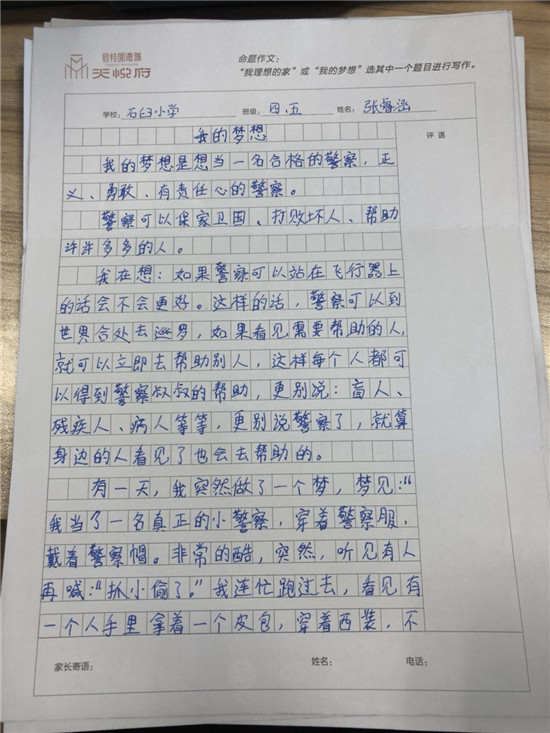 碧桂园壹號
天悦府
命题作文:
"我理想的家"或"我的梦想"选其中一个题目进行写作。
学校: 石臼小学 班级: 四、五 姓名: 张睿涵
评 语
我的梦想
我的梦想是想当一名合格的警察,正
义、勇敢、有责任心的警察。
警察可以保家卫国、打败坏人、帮助
许许多多的人。
我在想:如果警察可以站在飞行器上
的话会不会更好。这样的话,警察可以到
世界合处去巡多,如果看见需要帮助的人,
就可以立即去帮助别人,这样每个人都可
以得到警察叔叔的帮助,更别说:盲人、
残疾人、病人等等,更别说警察了,就算
身边的人看见了也会去帮助的。
有一天,我突然做了一个梦,梦见:"
我当了一名真正的小警察,穿着警察服,
戴着警察帽。非常的酷,突然,听见有人
再喊:"抓小偷了。"我连忙跑过去,看见有
一个人手里拿着一个皮包,穿着西装,不
家长寄语: 姓名: 电话: